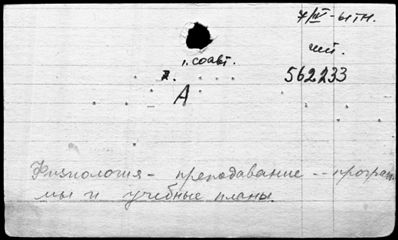 7/IV-61 г.
1. соавт.
шт.
562233
А
Физиология - преподавание -- програм-
мы и учебные планы.